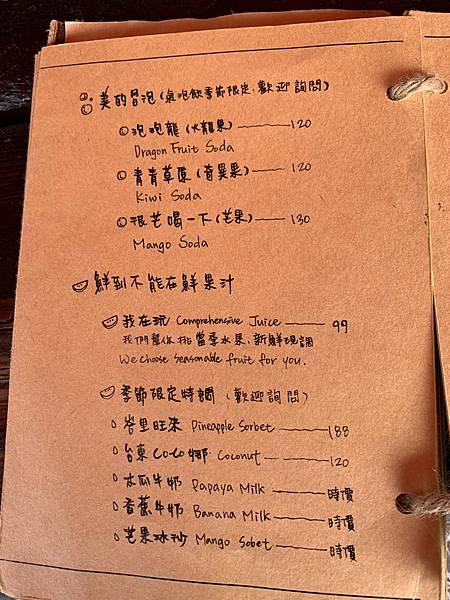 美的冒泡(氣泡飲季節限定,歡迎詢問)
泡泡龍(火龍果)——120
Dragon Fruit Soda
青青草原(奇異果)——120
Kiwi Soda
很芒喝一下(芒果)——130
Mango Soda
鮮到不能在鮮果汁
我在玩 Comprehensive Juice —— 99
我們幫你挑當季水果,新鮮現調
We choose seasonable fruit for you.
季節限定特調(歡迎詢問)
峇里旺來 Pineapple Sorbet ——188
台東COCO椰 Coconut ——120
木瓜牛奶 Papaya Milk ——時價
香蕉牛奶 Banana Milk ——時價
芒果冰沙 Mango Sobet ——時價